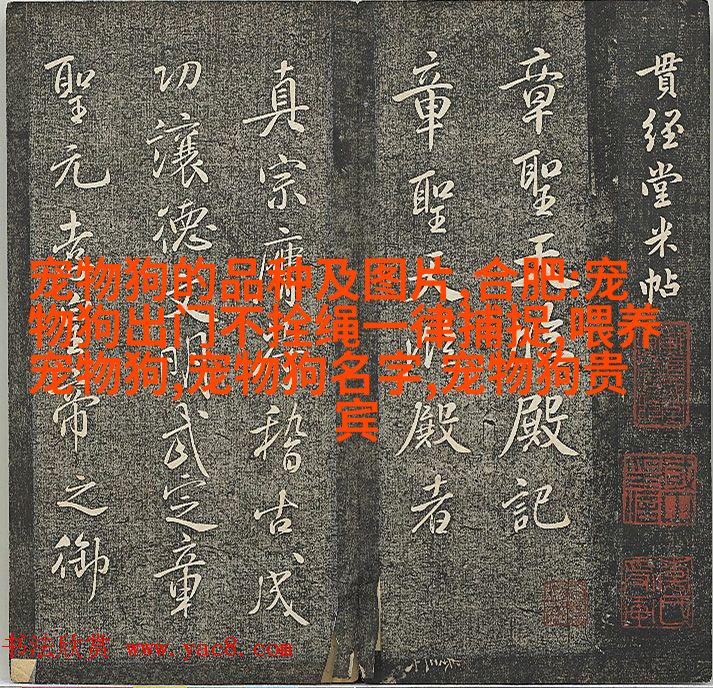 貫經堂米帖
章聖天臨殿記
章聖天臨殿者
真宗稽古成
功讓德文明武定章
聖元孝皇帝之御
宠物狗的品种及图片,合肥:宠
物狗出门不拴绳一律捕捉,喂养
宠物狗,宠物狗名字,宠物狗贵
宾
书法欣赏 www.yac8.com